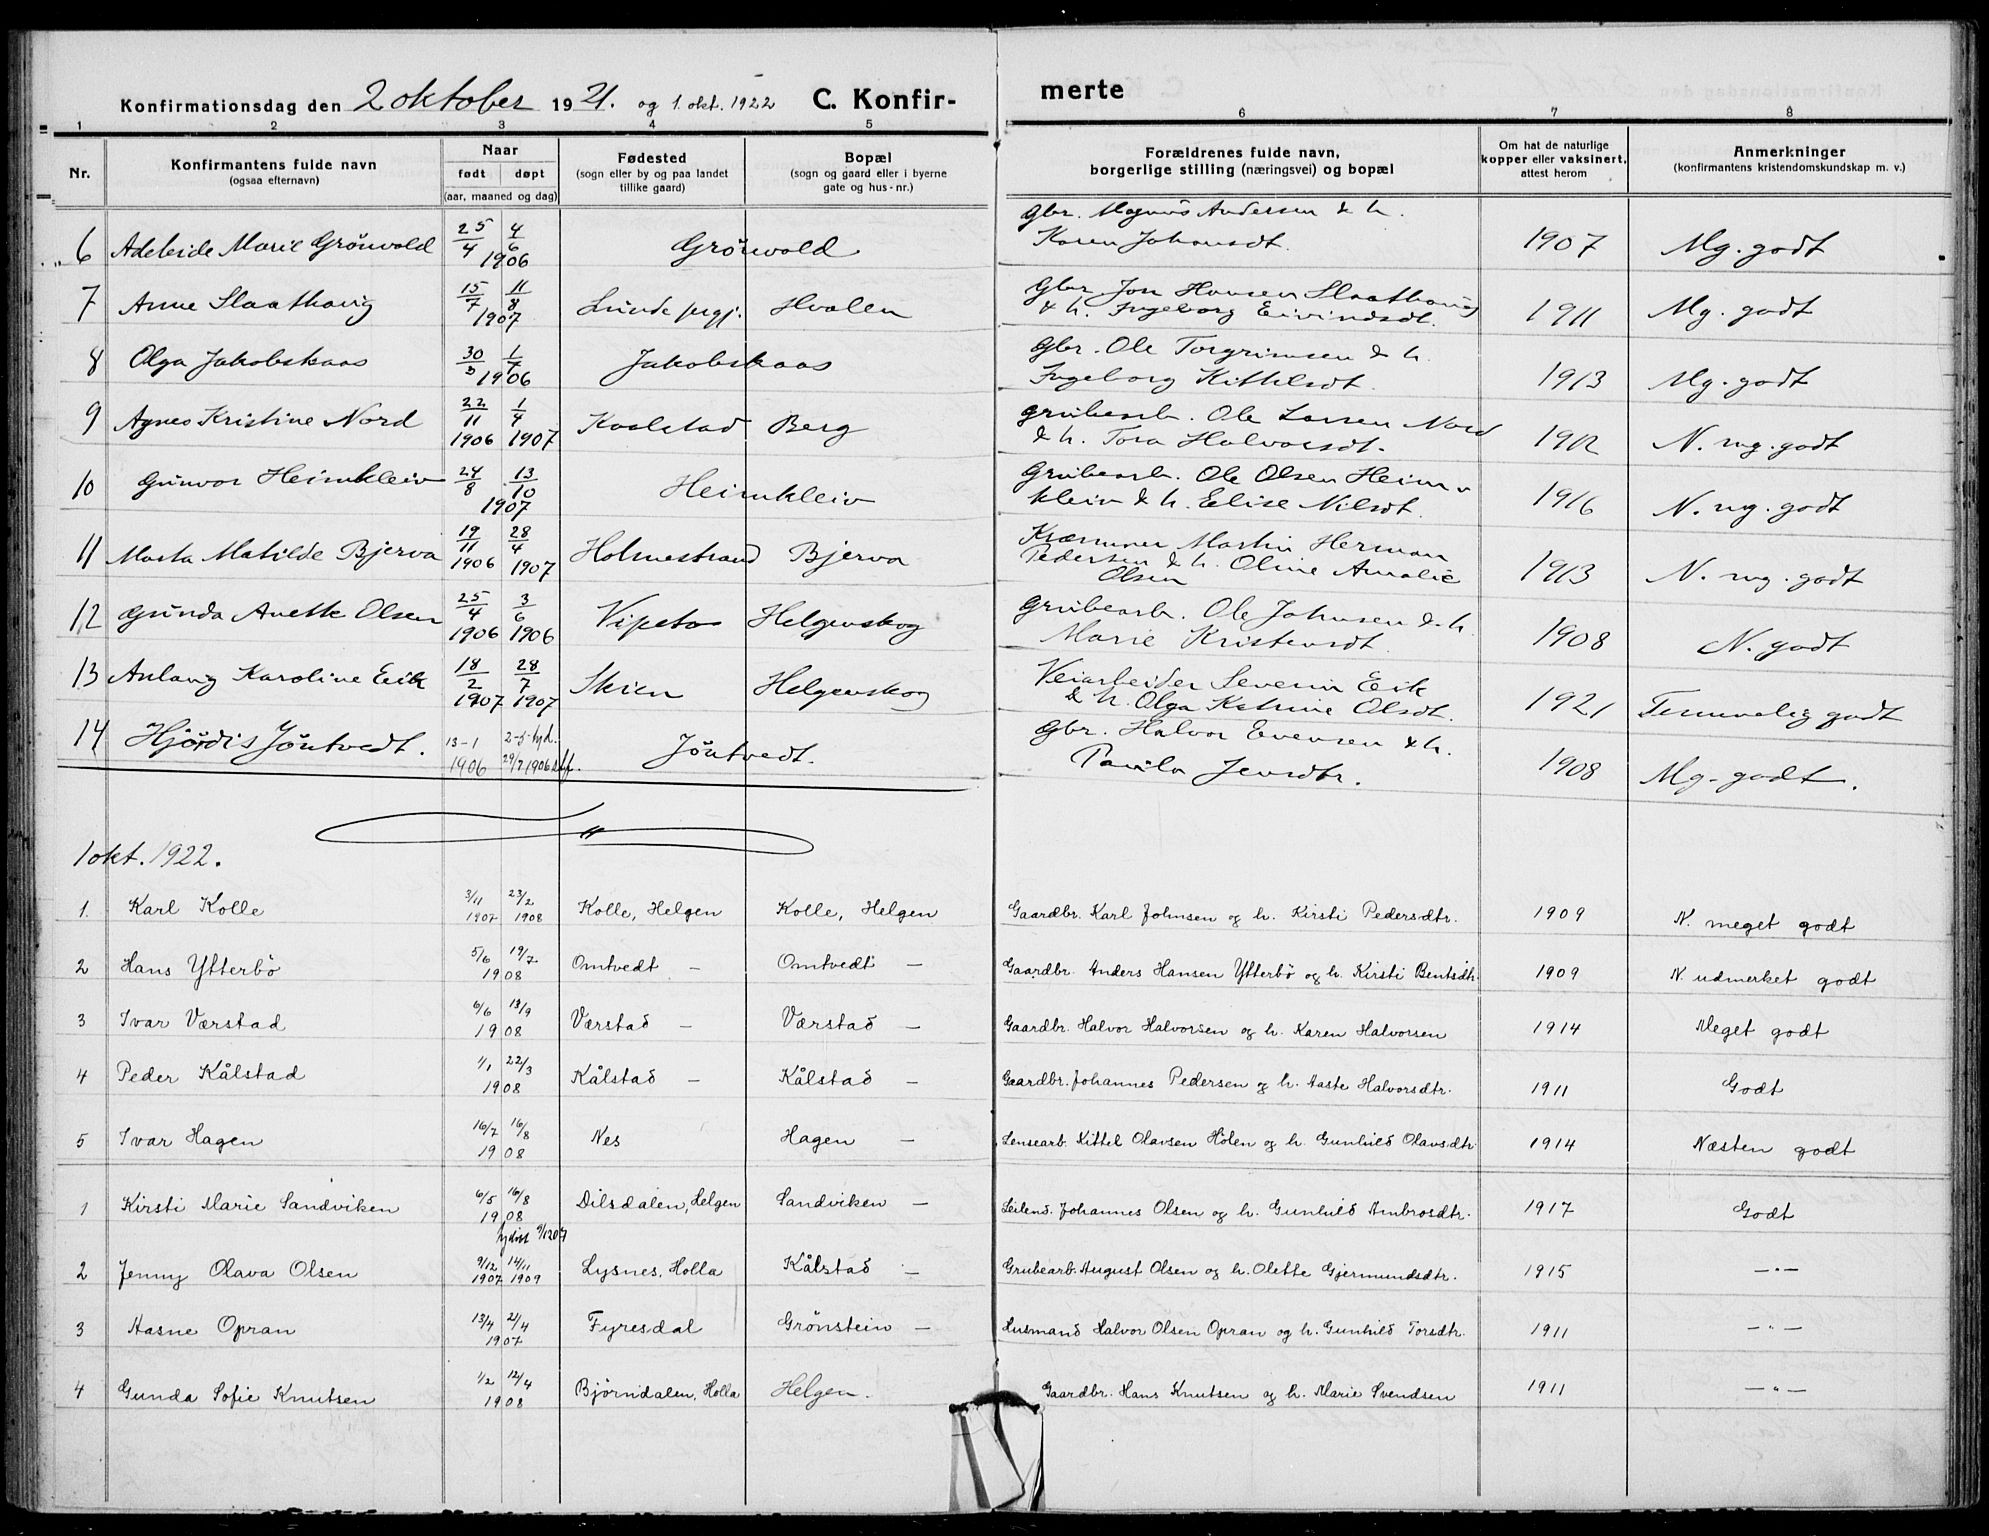 Konfirmationsdag den 2 oktober 1921. og 1. okt. 1922 C. Konfir-
merte
1 2 3 4 5 6 7 8
Nr.
Konfirmantens fulde navn
(ogsaa efternavn)
Naar
født døpt
(aar, maaned og dag)
Fødested
(sogn eller by og paa landet
tillike gaard)
Bopæl
(sogn og gaard eller i byerne
gate og hus-nr.)
Forældrenes fulde navn,
borgerlige stilling (næringsvei) og bopæl
Om hat de naturlige
kopper eller vaksinert,
attest herom
Anmerkninger
(konfirmantens kristendomskundskap m. v.)
6 Adeleide Marie Grönvold 25/4 4/6 1906 Grönvold Gbr. Magnus Andersen & h. Karen Johansdt. 1907 Mg. godt
7 Anne Slaathaug 15/7 11/8 1907 Lunde prgj. Hvalen Gbr. Jon Hansen Slaathaug & h. Ingeborg Eivindsdt. 1911 Mg. godt
8 Olga Jakobskaas 30/3 1/7 1906 Jakobskaas Gbr. Ole Torgrimsen & h. Ingeborg Kittilsdt. 1913 Mg. godt
9 Agnes Kristine Nord 22/11 1906 1/4 1907 Kaalstad Berg Grubearb. Ole Larsen Nord & h. Tora Halvorsdt. 1912 N. mg. godt
10 Gunvor Heimkleiv 24/8 13/10 1907 Heimkleiv Grubearb. Ole Olsen Heimkleiv & h. Elise Nilsdt. 1916 N. mg. godt
11 Marta Matilde Bjerva 19/11 1906 28/4 1907 Holmestrand Bjerva Kræmmer Martin Herman Pedersen & h. Oline Amalie Olsen 1913 N. mg. godt
12 Gunda Anette Olsen 25/4 1906 3/6 1906 Vipeto Helgenskog Grubearb. Ole Johnsen & h. Marie Kristensdt. 1908 N. godt
13 Aslaug Karoline Eik 18/2 1907 28/7 1907 Skien Helgenskog Veiarbeider Severin Eik & h. Olga Katrine Olsdt. 1921 Temmelig godt
14 Hjördis Jöntvedt. 13-1 1906 2-5 hjd. 29/7 1906 stf. Jöntvedt. Gbr. Halvor Evensen & h. Paula Jensdtr. 1908 Mg. godt.
1 okt. 1922.
1. Karl Kolle 3/11 1907 23/2 1908 Kolle, Helgen Kolle, Helgen Gaardbr. Karl Johnsen og h. Kirsti Pedersdtr. 1909 N. meget godt
2 Hans Ytterbö 5/6 19/7 1908 Omtvedt — Omtvedt — Gaardbr. Anders Hansen Ytterbö og h. Kirsti Bentsdtr. 1909 N. udmerket godt
3 Ivar Værstad 6/6 13/9 1908 Værstad — Værstad — Gaardbr. Halvor Halvorsen og h. Karen Halvorsen 1914 Meget godt
4 Peder Kålstad 1/1 22/3 1908 Kålstad — Kålstad — Gaardbr. Johannes Pedersen og h. Aaste Halvorsdtr. 1911 Godt
5 Ivar Hagen 16/7 16/8 1908 Nes Hagen — Lensearb. Kittel Olavsen Holen og h. Gunhild Olavsdtr. 1914 Næsten godt
1 Kirsti Marie Sandviken 6/5 16/8 1908 Dilsdalen, Helgen Sandviken — Leilend. Johannes Olsen og h. Gunhild Ambrosdtr. 1917 Godt
2 Jenny Olava Olsen 9/12 1907 14/11 1909 Lysnes, Holla Kålstad — Grubearb. August Olsen og h. Olette Gjermundsdtr. 1915 —"—
3 Aasne Opran 13/4 21/4 1907 Fyresdal Grönstein — Husmand Halvor Olsen Opran og h. Gunhild Torsdtr. 1911 —"—
4 Gunda Sofie Knutsen 1/2 12/4 1908 Björndalen, Holla Helgen. Gaardbr. Hans Knutsen og h. Marie Svendsen 1911 —"—